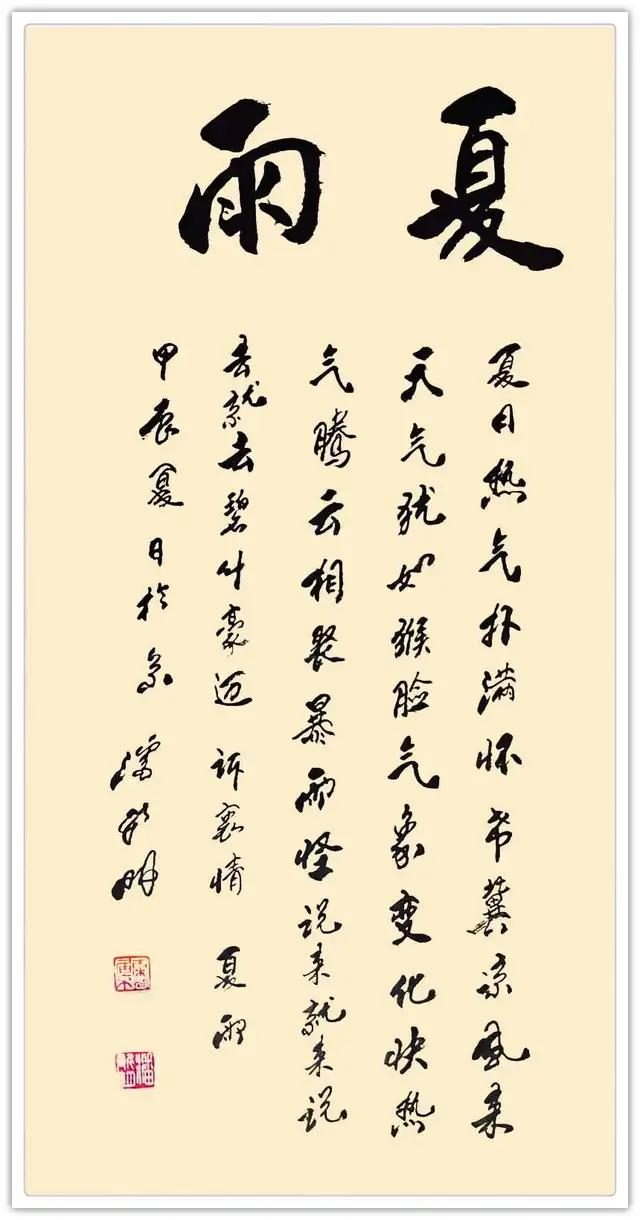 夏雨
夏日热气扑满怀希冀凉风来
天气犹如猴脸气象变化快热
气腾云相聚暴雨怪说来就来说
去就去碧叶豪迈诉衷情 夏雨
甲辰夏日於京 潘明